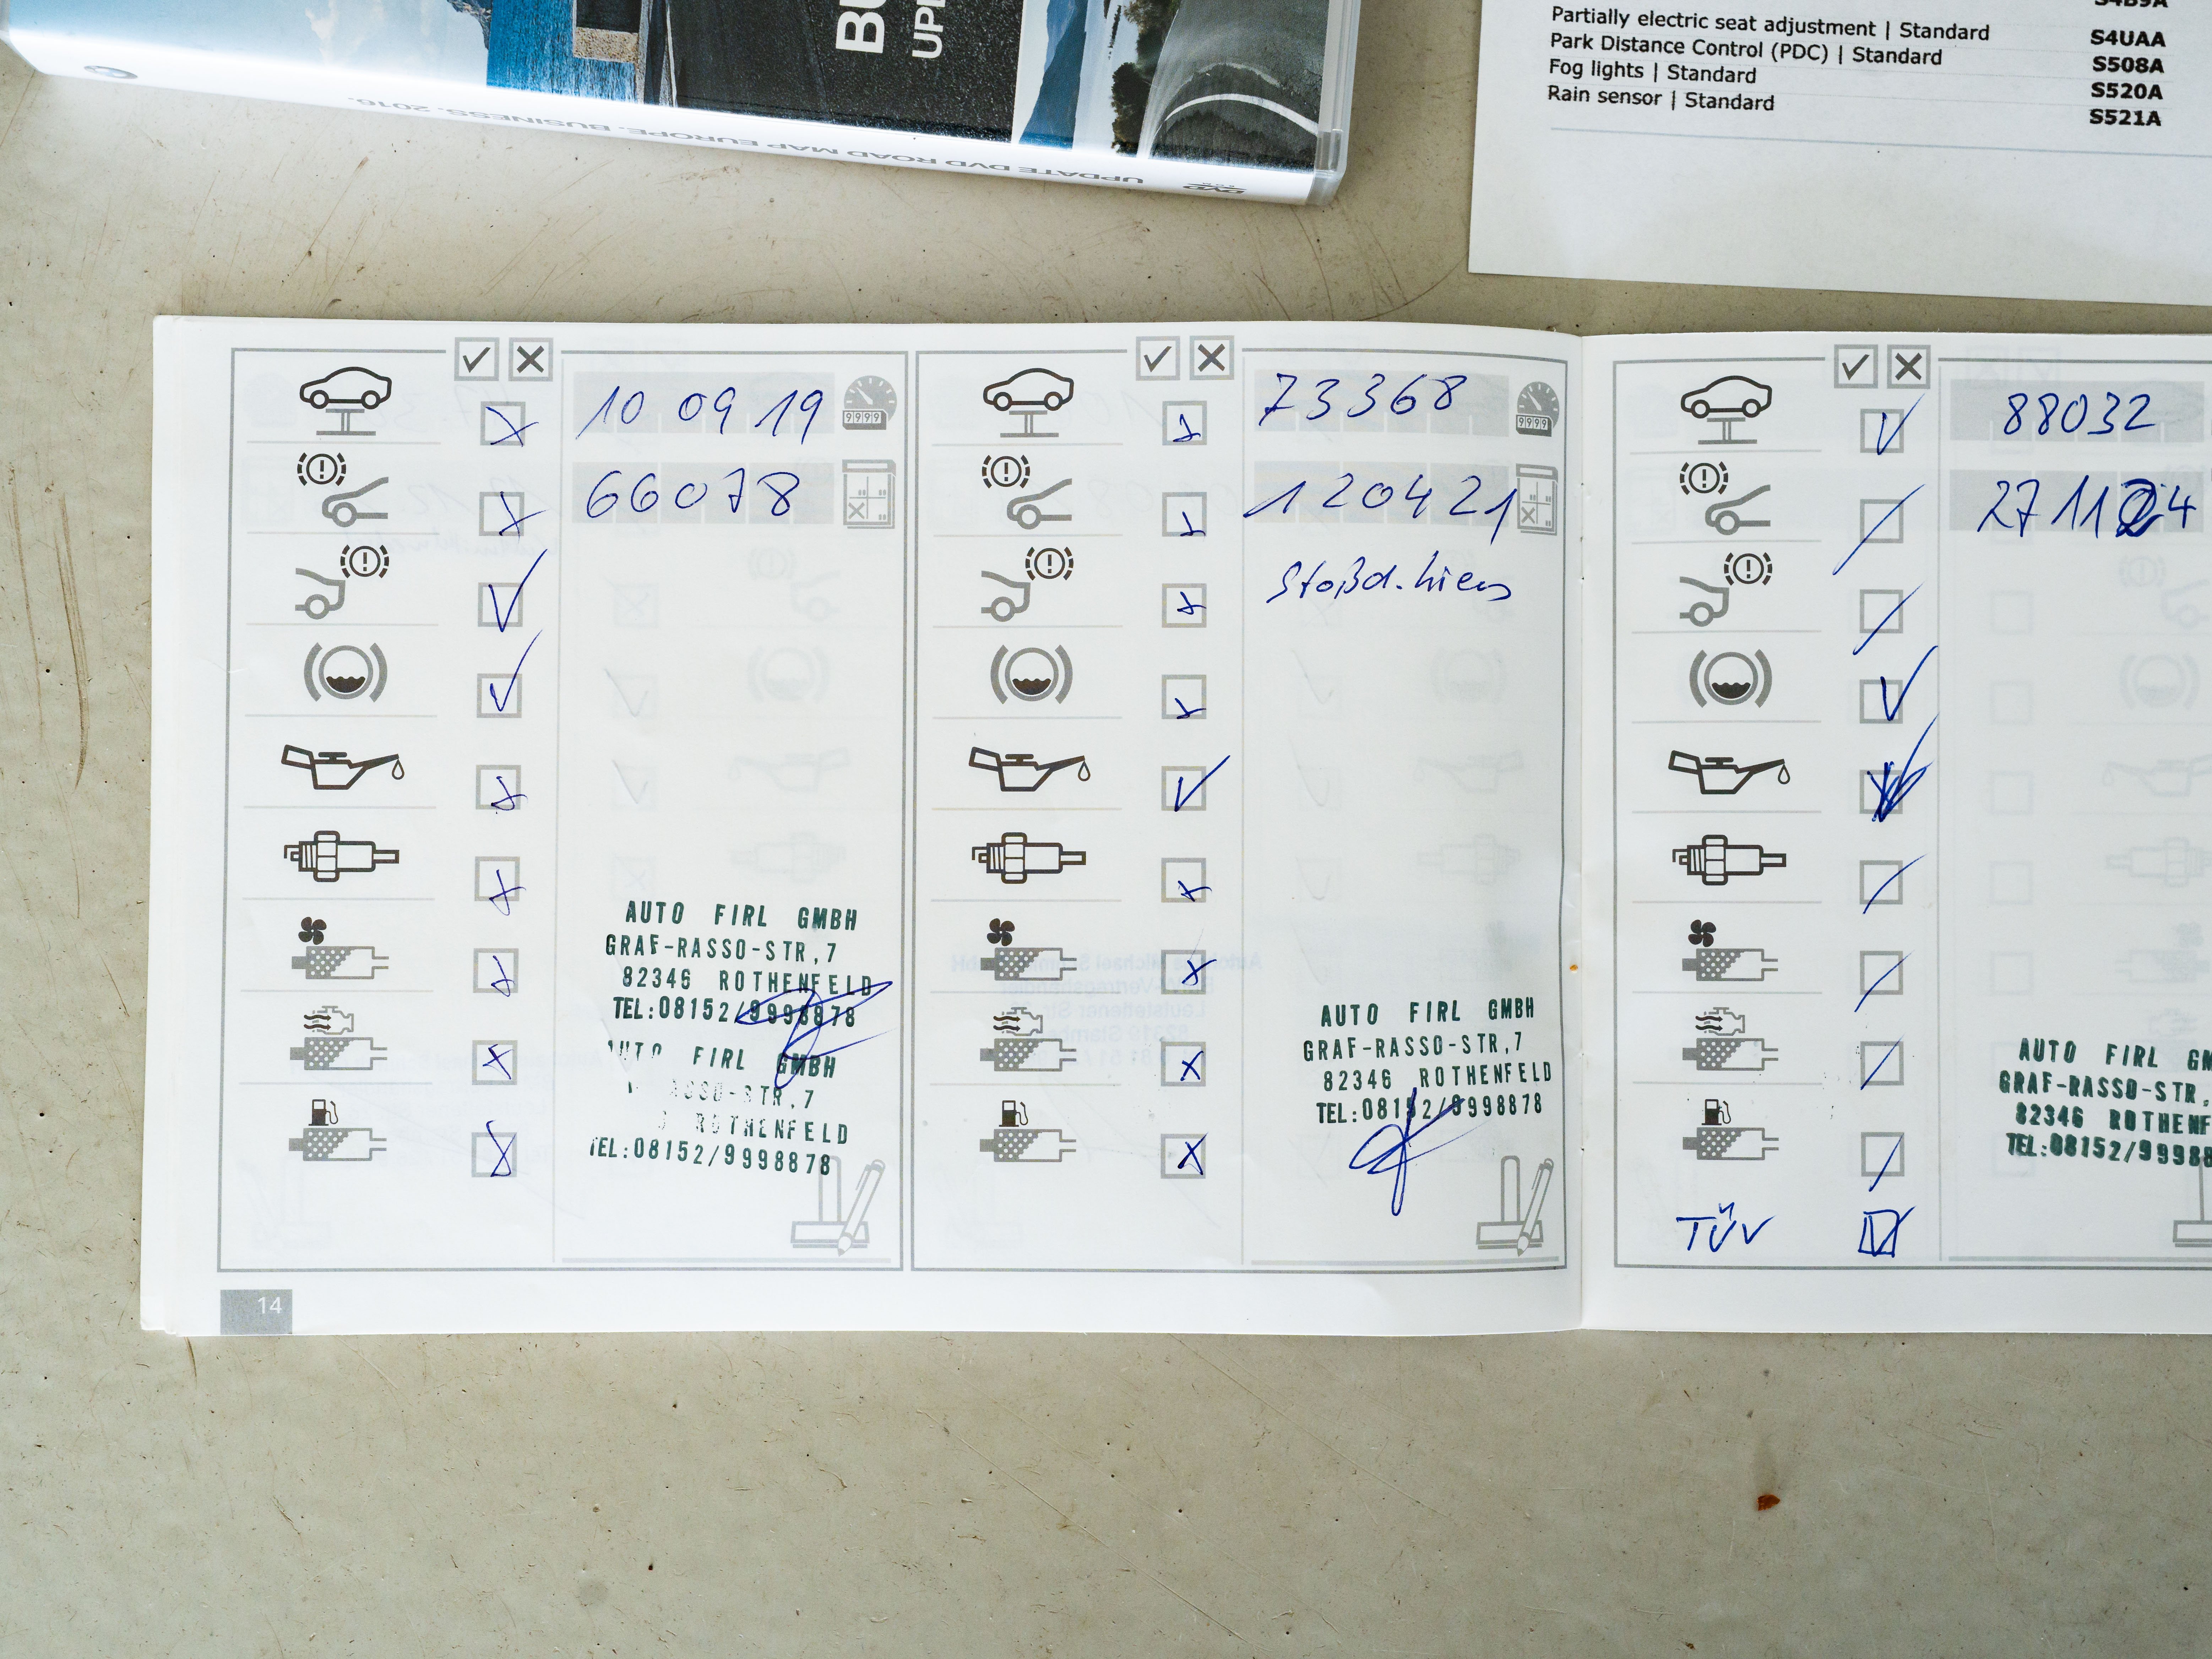 BU
UPD
UPDATE DVD ROAD MAP EUROPE. BUSINESS. 2016.
S4B9A
Partially electric seat adjustment | Standard S4UAA
Park Distance Control (PDC) | Standard S508A
Fog lights | Standard S520A
Rain sensor | Standard S521A
10 09 19
9999
66078
AUTO FIRL GMBH
GRAF-RASSO-STR,7
82346 ROTHENFELD
TEL:08152/9998878
AUTO FIRL GMBH
RASSO-STR,7
ROTHENFELD
TEL:08152/9998878
14
73368
9999
120421
AUTO FIRL GMBH
GRAF-RASSO-STR,7
82346 ROTHENFELD
TEL:08152/9998878
88032
271124
AUTO FIRL GM
GRAF-RASSO-STR,
82346 ROTHENF
TEL:08152/99988
TÜV